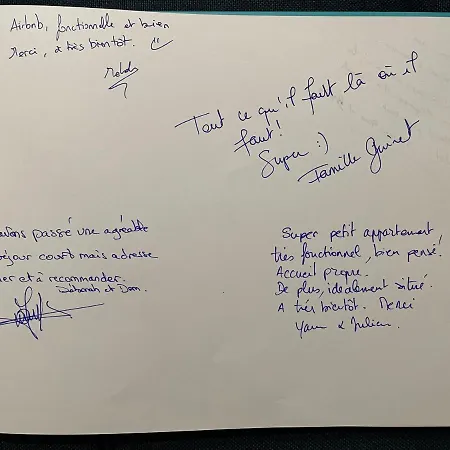 Airbnb, fonctionnelle et bien
Merci, à très bientôt.
Tout ce qu'il faut là où il
faut!
Super :)
Famille Guinet
avons passé une agréable
séjour court mais adresse
et à recommander.
Deborah et Dom.
Super petit appartement,
très fonctionnel, bien pensé.
Accueil propre.
De plus, idéalement situé.
A très bientôt. Merci
Yann & Julien.